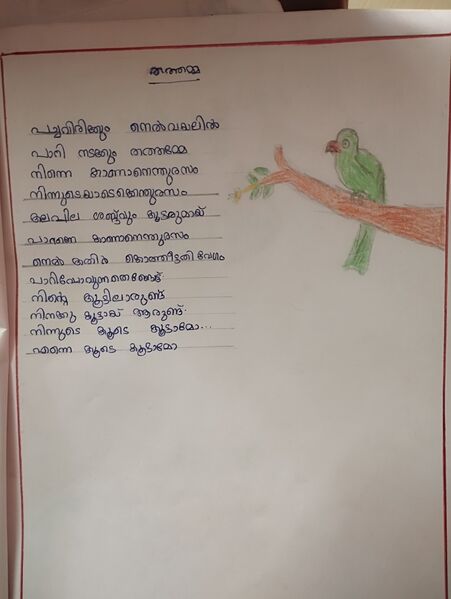 തത്തമ്മ
പച്ചവിരിക്കും നെൽവയലിൽ
പാറി നടക്കും തത്തമ്മേ
നിന്നെ കാണാനെന്തുരസം
നിന്നുടെപാടെക്കെന്തുരസം
കലപില ശബ്ദവും കൂടരുമായ്
പാറുന്ന കാണാനെന്തുരസം
നെൽ കതിർ കൊത്തീട്ടതിവേഗം
പാറിപ്പോവുന്നതെങ്ങോട്ട്
നിന്റെ കൂട്ടിലാരുണ്ട്
നിനക്കു കൂട്ടായ് ആരുണ്ട്
നിന്നുടെ കൂടെ കൂടാമോ...
എന്നെ കൂടെ കൂടാമോ